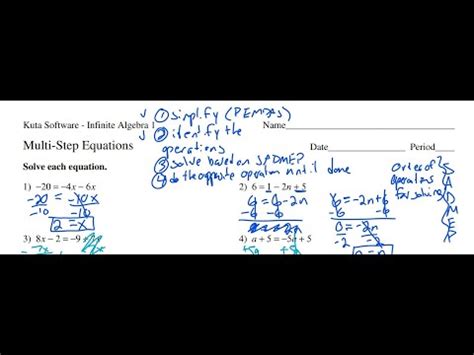 ① simplify (PEMDAS)
② identify the
operations
③ solve based on SADMEP
④ do the opposite operation until done
Kuta Software - Infinite Algebra 1
Name
Multi-Step Equations
Date Period
Solve each equation.
Order of
operations
for solving
SADMEP
1) −20 = −4x − 6x
-20 = -10x
-10 -10
2 = x
2) 6 = 1 − 2n + 5
6 = 6 - 2n
-6 -6
6 = -2n + 6
-6 -6
0 = -2n
-2 -2
3) 8x − 2 = −9 +
4) a + 5 = −5a + 5